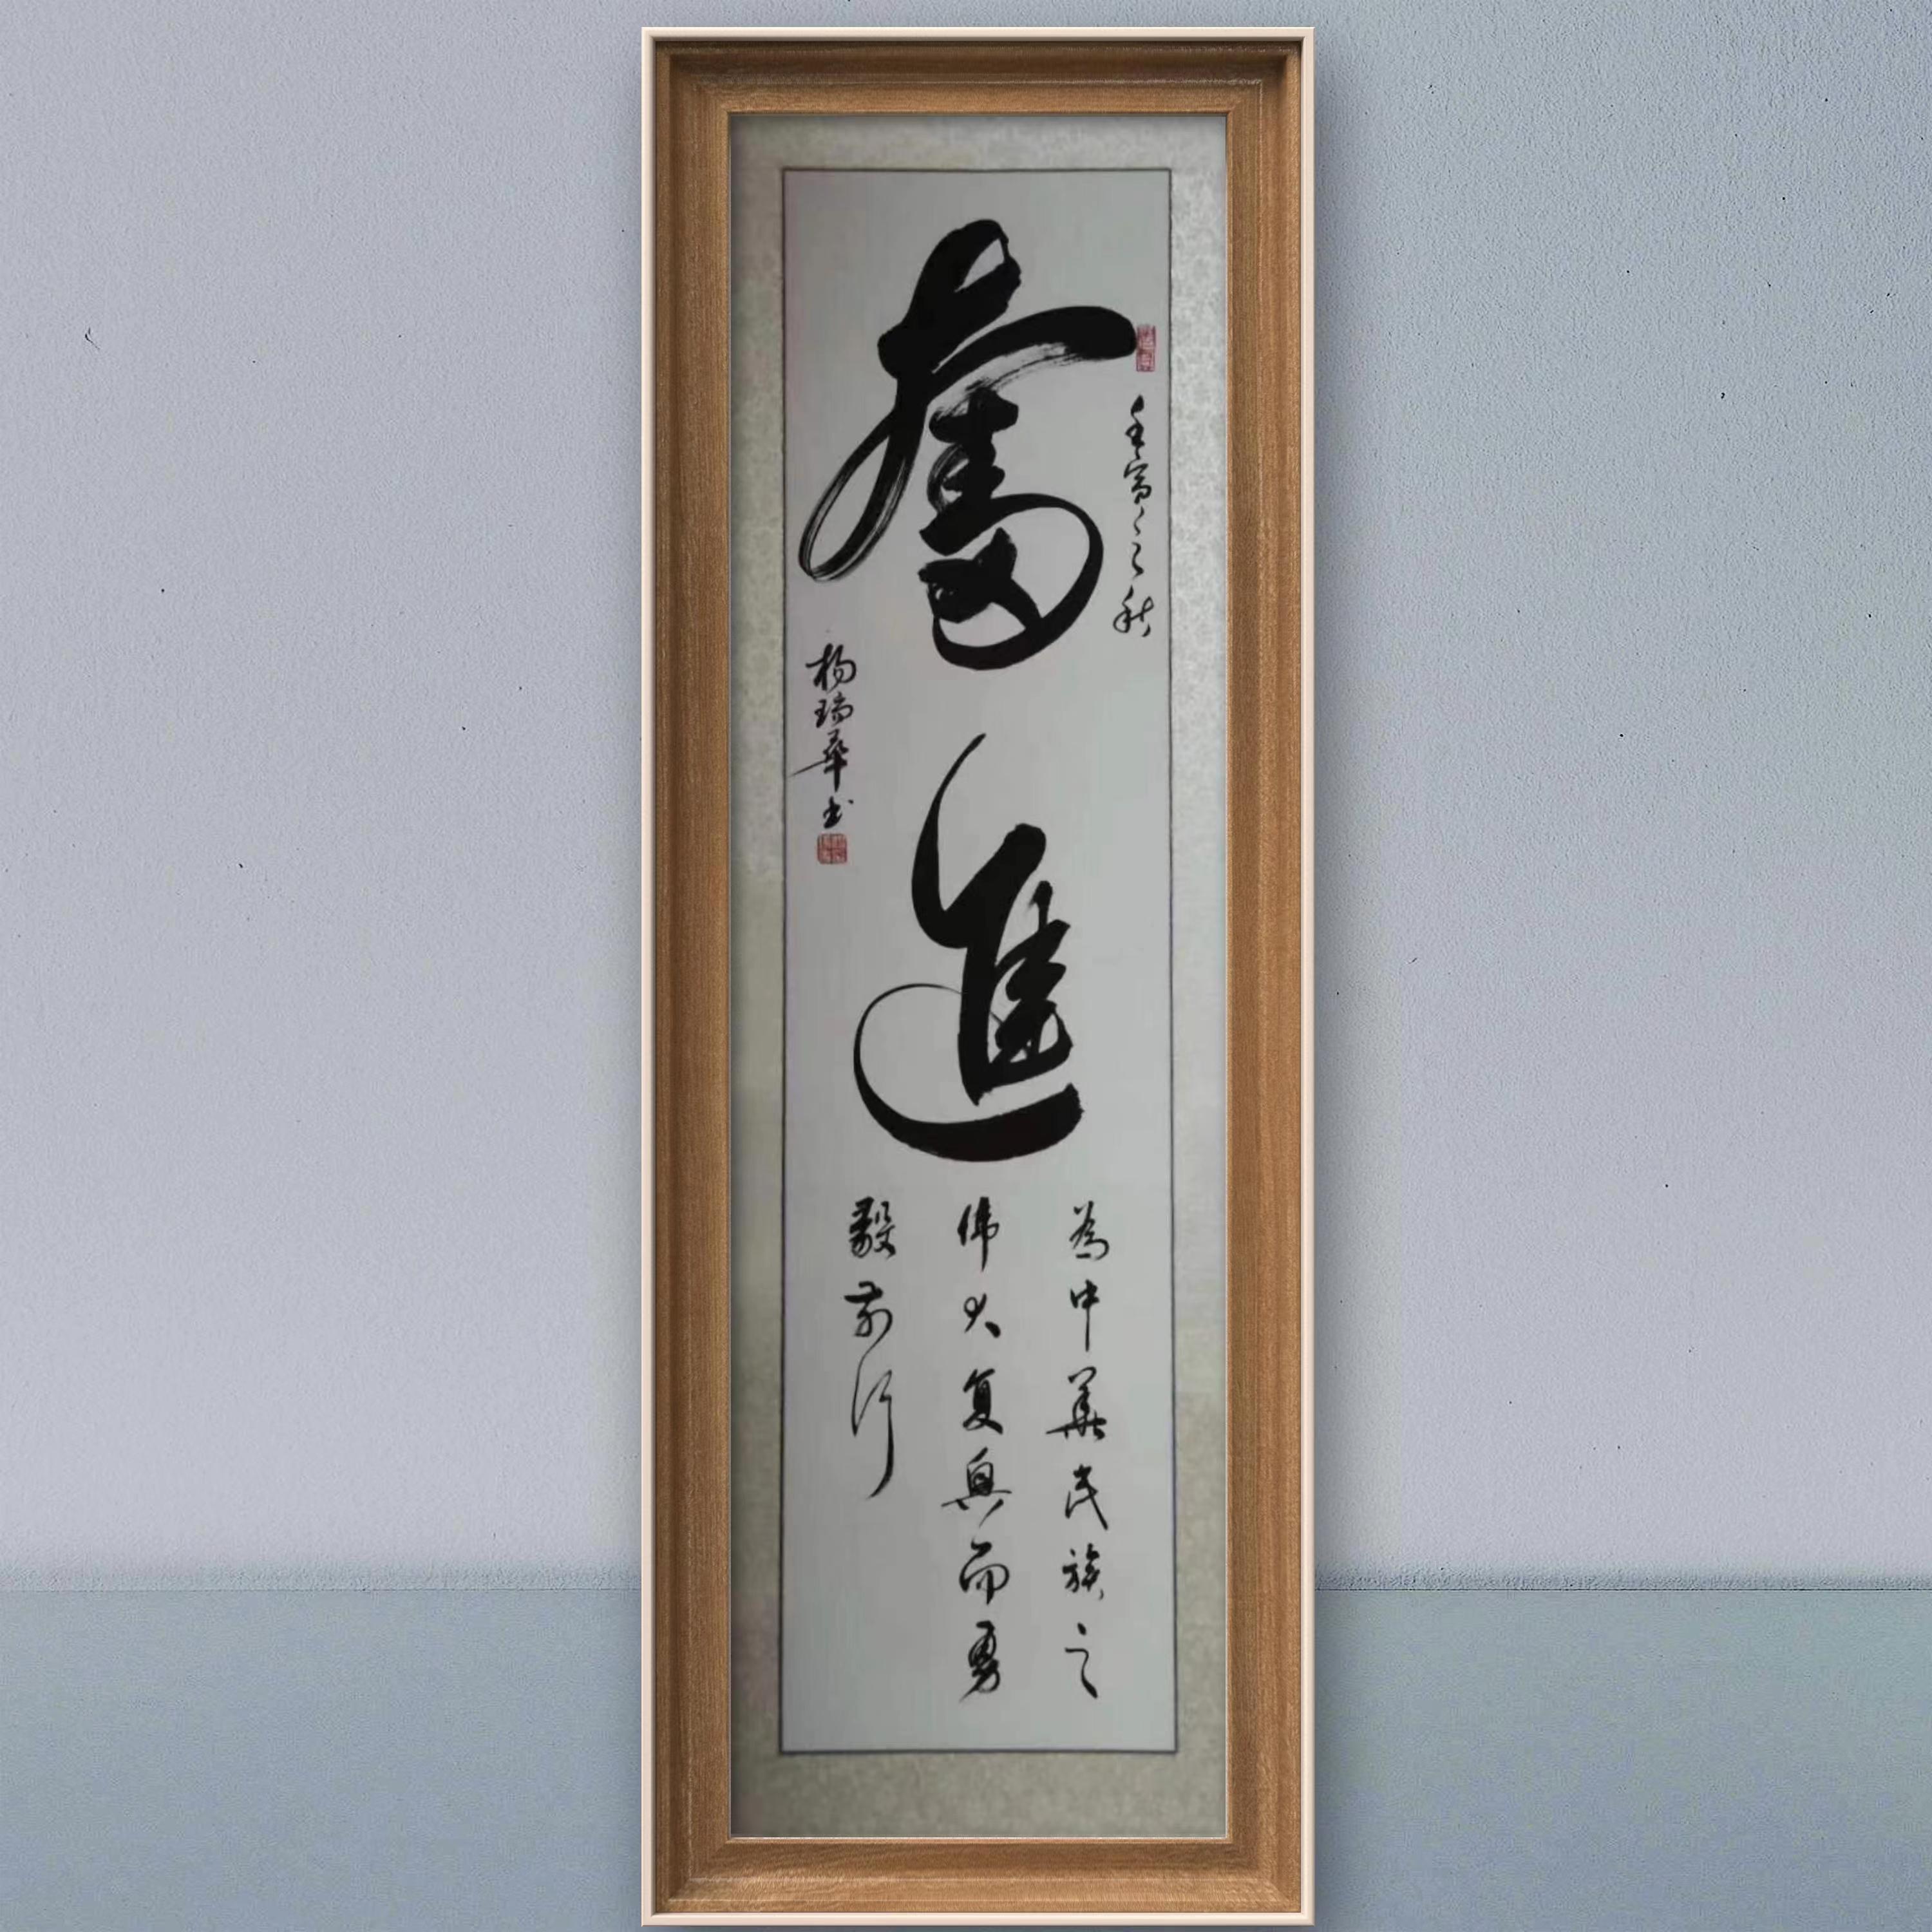 壬寅之秋
奮
進
為中華民族之
偉大复興而勇
毅前行
楊瑞華书